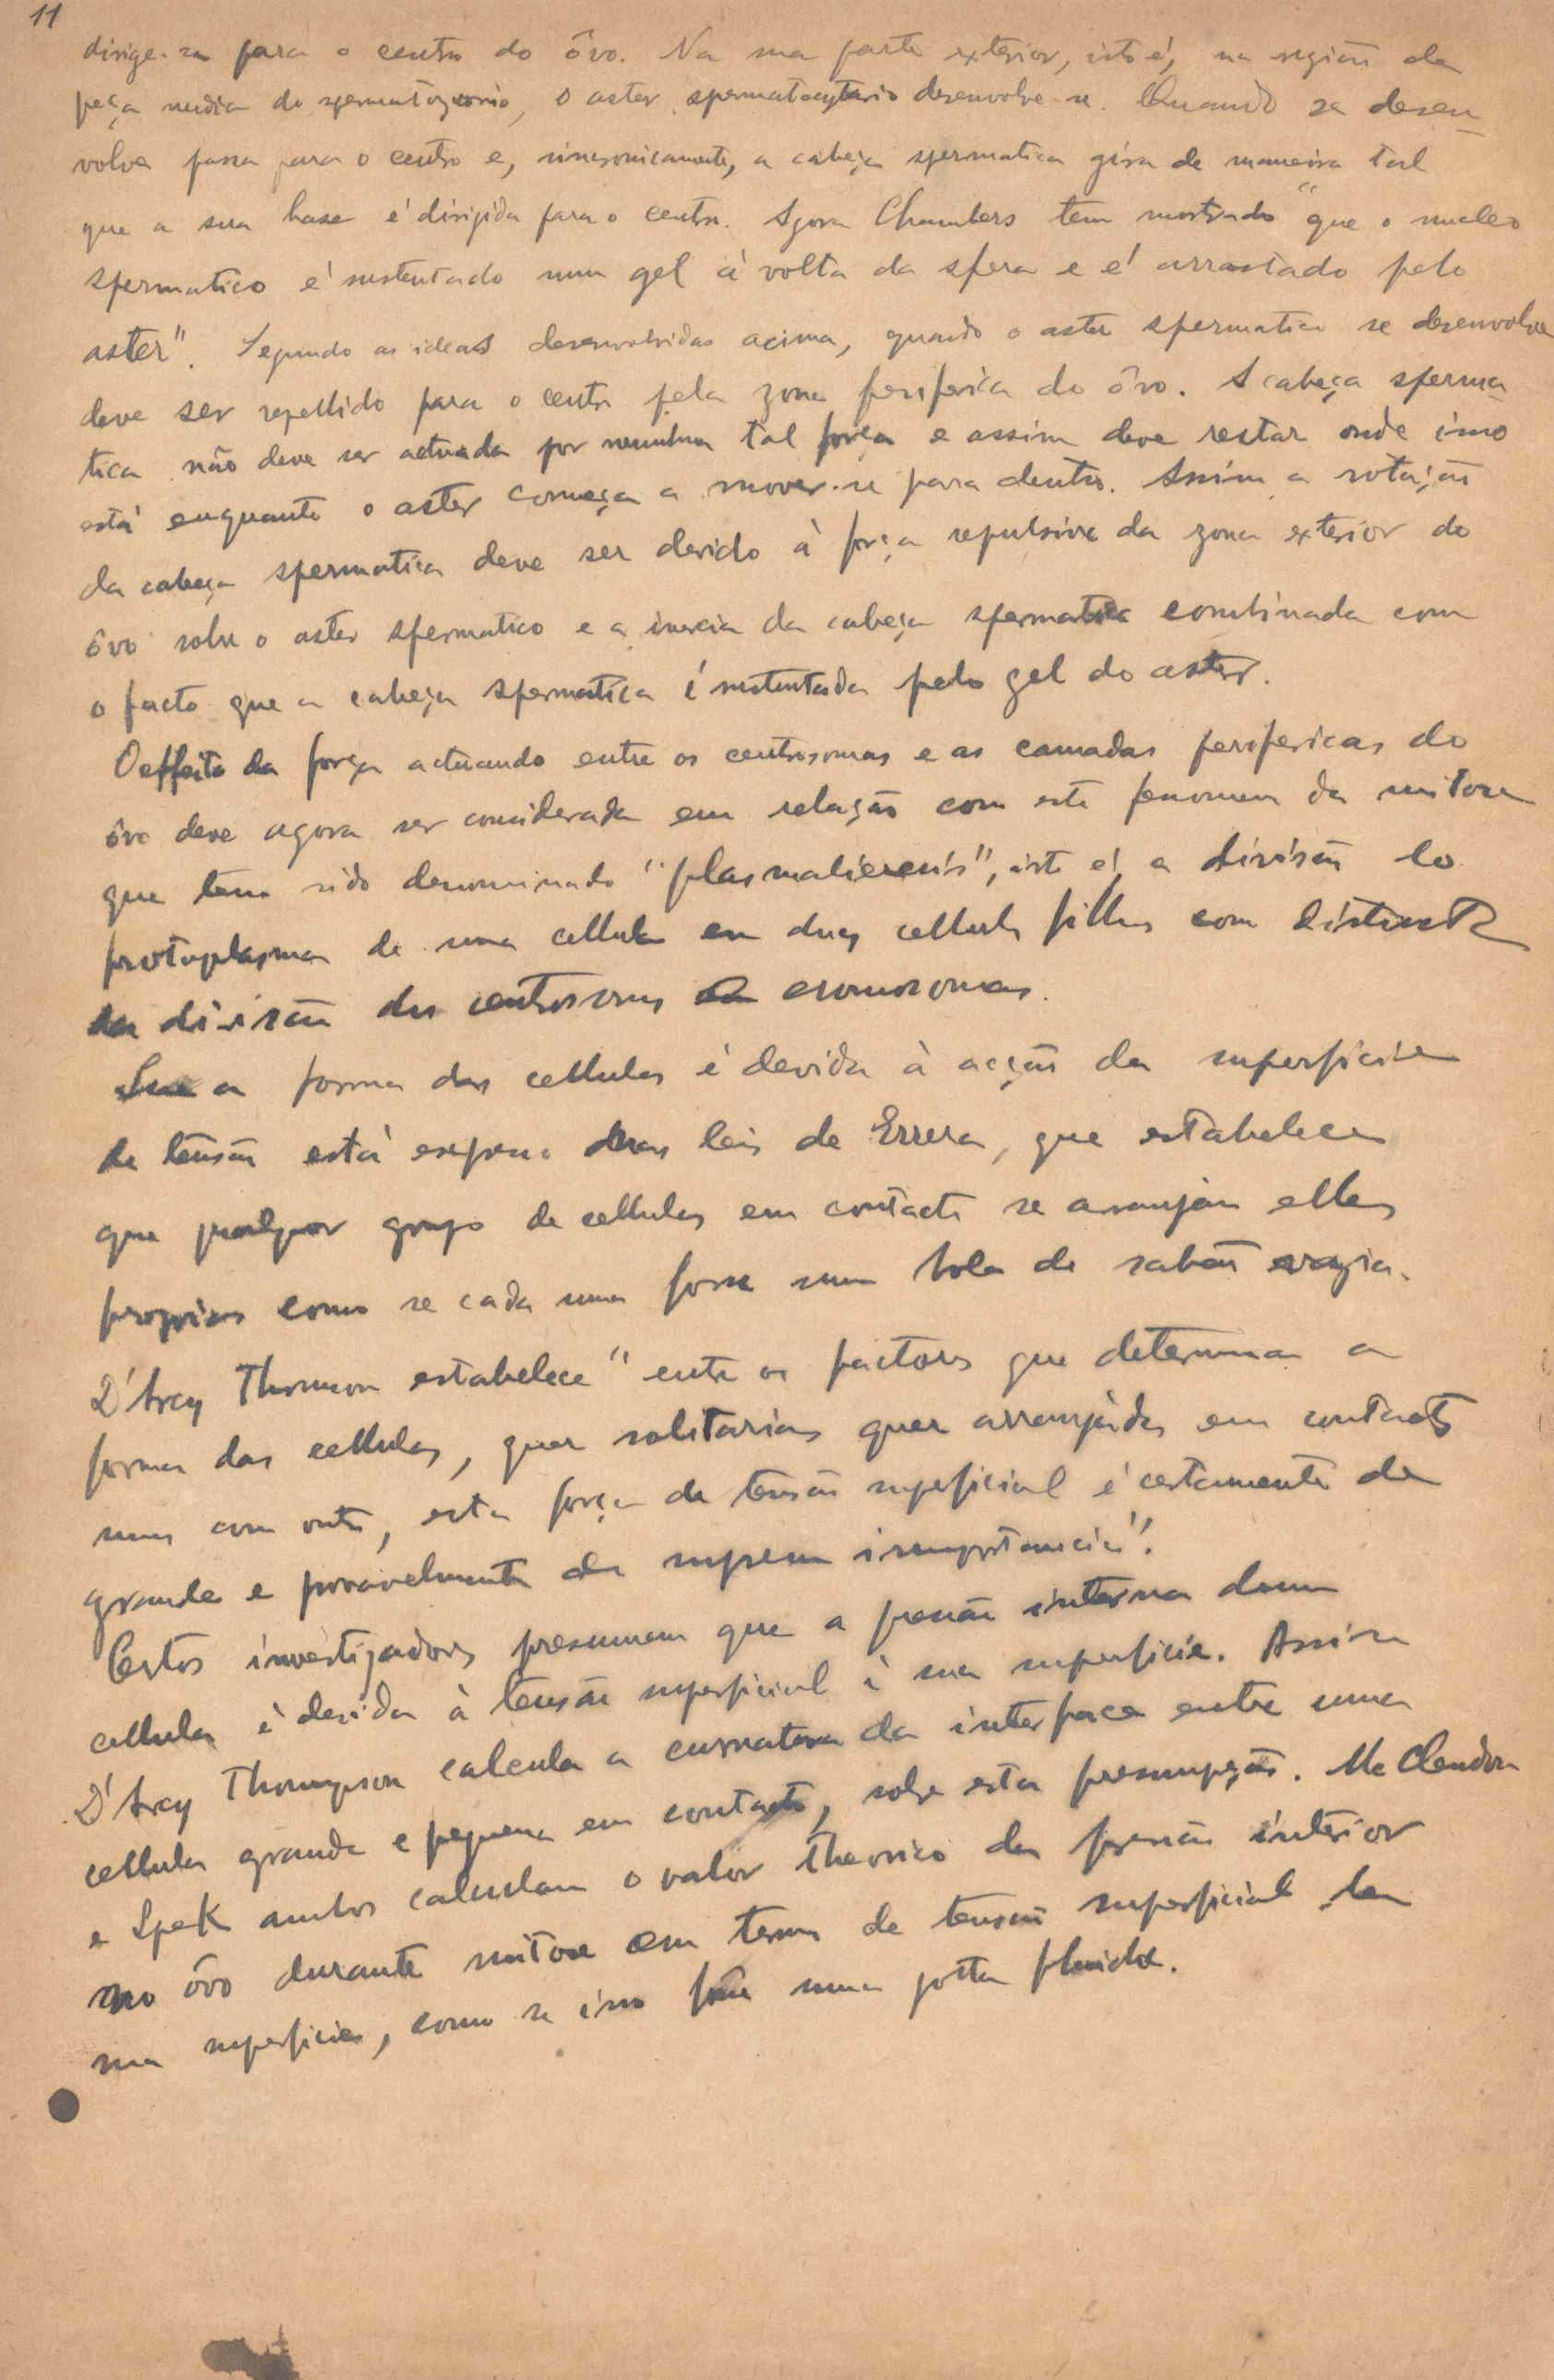 11
dirige-se para o centro do ôvo. Na sua parte exterior, isto é, na região da
peça media do spermatozorio, o aster spermatocytario desenvolve-se. Quando se desen
volve passa para o centro e, sincronicamente, a cabeça spermatica gira de maneira tal
que a sua base é dirigida para o centro. Agora Chambers tem mostrado "que o nucleo
spermatico é sustentado num gel á volta da sfera e é arrastado pelo
aster". Segundo as ideas desenvolvidas acima, quando o aster spermatico se desenvolve
deve ser repellido para o centro pela zona periferica do ôvo. A cabeça sperma
tica não deve ser actuada por nenhuma tal força e assim deve restar onde isso
está enquanto o aster começa a mover-se para dentro. Assim a rotação
da cabeça spermatica deve ser devido á força repulsiva da zona exterior do
ôvo sobre o aster spermatico e a inercia da cabeça spermatica combinada com
o facto que a cabeça spermatica é sustentada pelo gel do aster.
O effeito da força actuando entre os centrosomas e as camadas perifericas do
ôvo deve agora ser considerada em relação com este fenomeno da mitose
que tem sido denominado "plasmalierenis", isto é, a divisão do
protoplasma de uma cellula em duas cellulas filhas com distincta
da divisão dos centrosomas cromosomas.
a forma das cellulas é devida à acção da superficie
de tensão está leis de Errera, que estabelece
que qualquer grupo de cellulas em contacto se arranjam ellas
proprias como se cada uma fosse uma bola de sabão vazia.
D'Arcy Thomson estabelece "entre os factores que determina a
forma das cellulas, quer solitarias quer arranjadas em contacto
umas com outra, esta força de tensão superficial é certamente de
grande e provavelmente de suprema importancia".
Certos investigadores presumem que a pressão interna duma
cellula é devida à tensão superficial á sua superficie. Assim
D'Arcy Thompson calcula a curvatura da interface entre uma
cellula grande e pequena em contacto, sobre esta presumpção. Mc Clendon
e Spek ambos calculam o valor theorico da pressão interior
no ôvo durante mitose em termos de tensão superficial da
sua superficie, como se isso fosse uma gotta fluida.